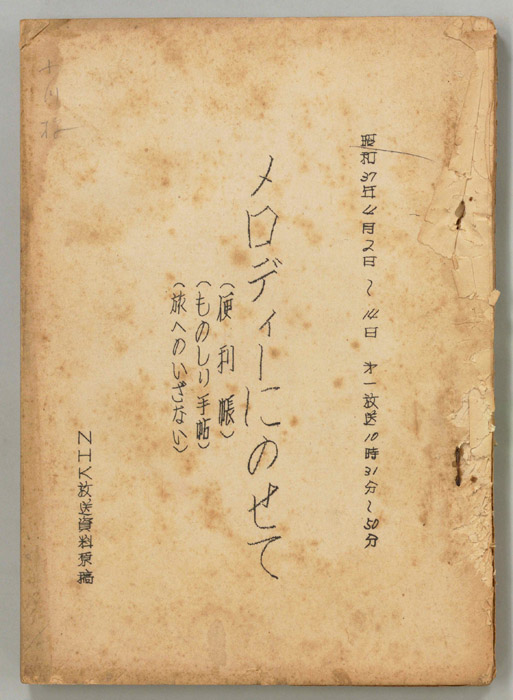 昭和37年4月2日〜14日 第一放送10時31分〜50分
メロディーにのせて
(便利帳)
(ものしり手帖)
(旅へのいざない)
NHK放送資料原稿